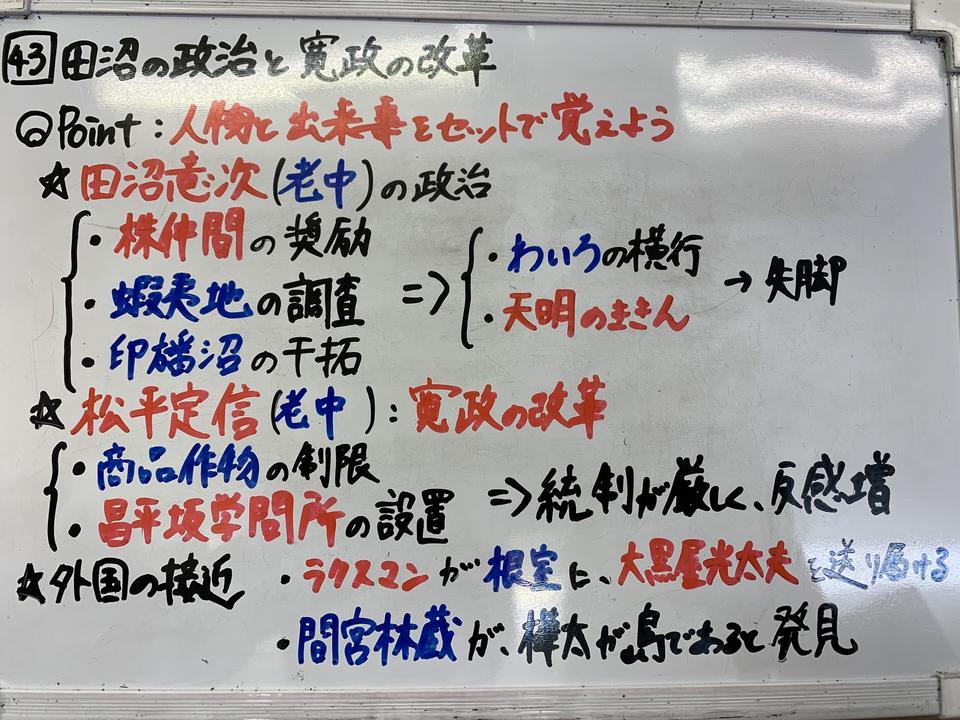 43 田沼の政治と寛政の改革
◎Point：人物と出来事をセットで覚えよう
☆田沼意次(老中)の政治
・株仲間の奨励
・蝦夷地の調査
・印旛沼の干拓
⇒
・わいろの横行
・天明のききん
→失脚
☆松平定信(老中)：寛政の改革
・商品作物の制限
・昌平坂学問所の設置
⇒統制が厳しく、反感増
☆外国の接近
・ラクスマンが根室に、大黒屋光太夫を送り届ける
・間宮林蔵が、樺太が島であると発見